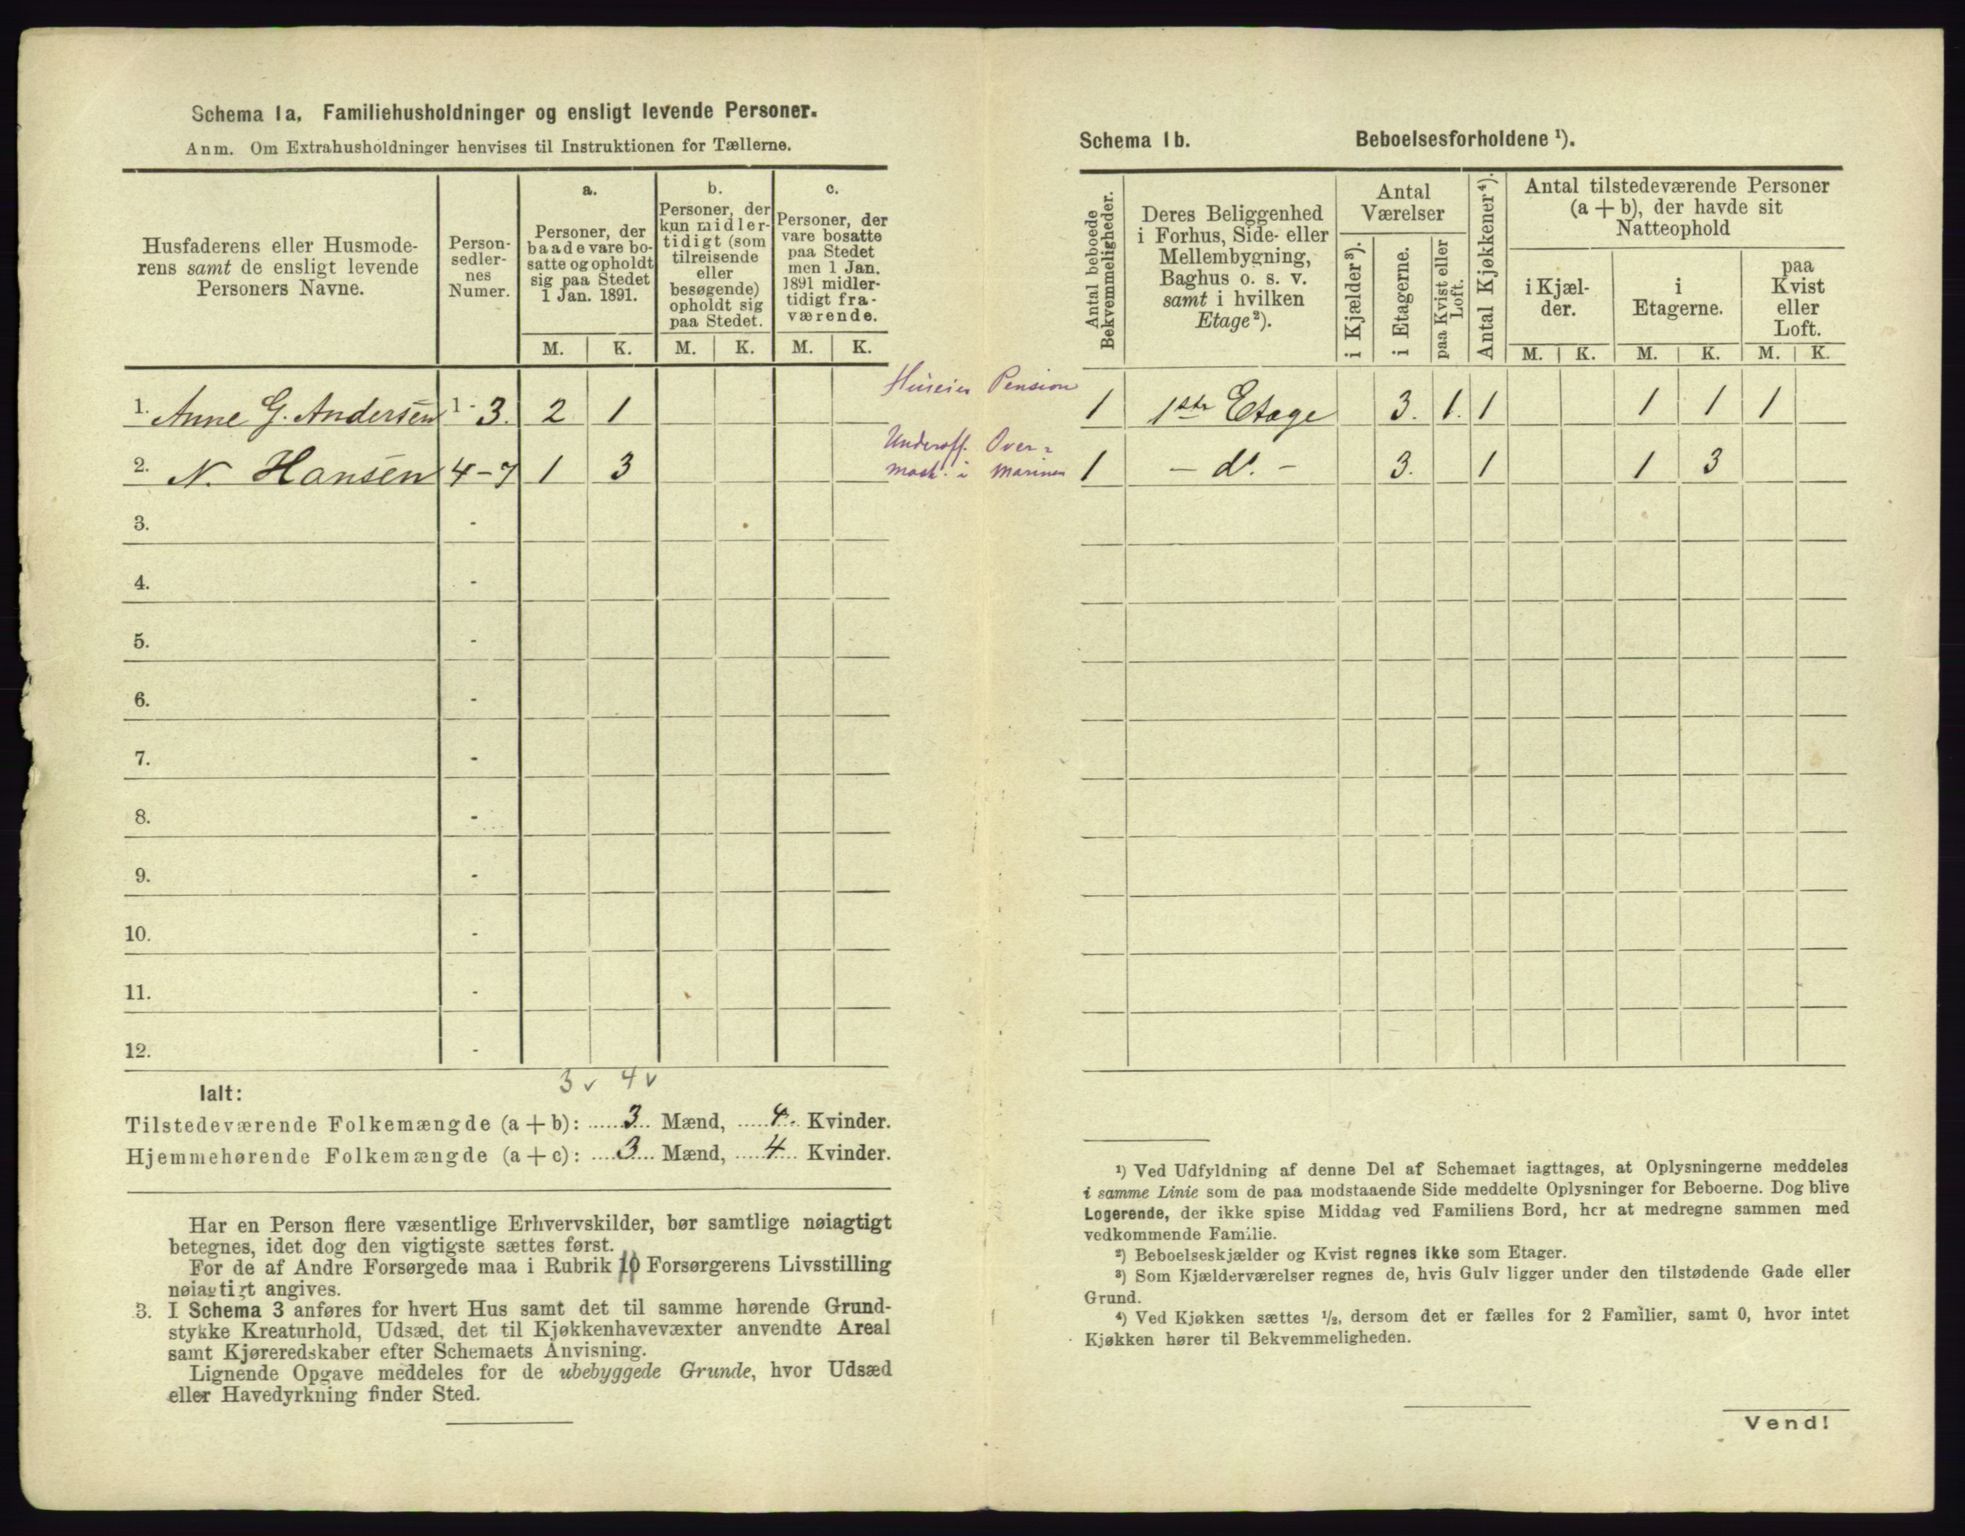 Schema 1a. Familiehusholdninger og ensligt levende Personer.
Anm. Om Extrahusholdninger henvises til Instruktionen for Tællerne.
Husfaderens eller Husmode-
rens samt de ensligt levende
Personers Navne.
Person-
sedler-
nes
Numer.
a.
Personer, der
baade vare bo-
satte og opholdt
sig paa Stedet
1 Jan. 1891.
b.
Personer, der
kun midler-
tidigt (som
tilreisende
eller
besøgende)
opholdt sig
paa Stedet.
c.
Personer, der
vare bosatte
paa Stedet
men 1 Jan.
1891 midler-
tidigt fra-
værende.
M. K. M. K. M. K.
1. Anne G. Andersen 1-3. 2 1
2. N. Hansen 4-7 1 3
3. -
4. -
5. -
6. -
7. -
8. -
9. -
10. -
11. -
12. -
3 v 4 v
Ialt:
Tilstedeværende Folkemængde (a + b): 3 Mænd, 4. Kvinder.
Hjemmehørende Folkemængde (a + c): 3 Mænd, 4 Kvinder.
Har en Person flere væsentlige Erhvervskilder, bør samtlige nøiagtigt
betegnes, idet dog den vigtigste sættes først.
For de af Andre Forsørgede maa i Rubrik 10 Forsørgerens Livsstilling
nøiagtigt angives.
3. I Schema 3 anføres for hvert Hus samt det til samme hørende Grund-
stykke Kreaturhold, Udsæd, det til Kjøkkenhavevæxter anvendte Areal
samt Kjøreredskaber efter Schemaets Anvisning.
Lignende Opgave meddeles for de ubebyggede Grunde, hvor Udsæd
eller Havedyrkning finder Sted.
Schema 1b. Beboelsesforholdene ¹).
Antal beboede
Bekvemmeligheder.
Deres Beliggenhed
i Forhus, Side- eller
Mellembygning,
Baghus o. s. v.
samt i hvilken
Etage²).
Antal
Værelser
i Kjælder³).
i Etagerne.
paa Kvist eller
Loft.
Antal Kjøkkener⁴).
Antal tilstedeværende Personer
(a + b), der havde sit
Natteophold
i Kjæl-
der.
i
Etagerne.
paa
Kvist
eller
Loft.
M. K. M. K. M. K.
Huseier Pension
1 1ste Etage 3. 1. 1 1 1 1
Underoff. Over-
mask. i Marinen
1 - do. - 3. 1 1 3
¹) Ved Udfyldning af denne Del af Schemaet iagttages, at Oplysningerne meddeles
i samme Linie som de paa modstaaende Side meddelte Oplysninger for Beboerne. Dog blive
Logerende, der ikke spise Middag ved Familiens Bord, her at medregne sammen med
vedkommende Familie.
²) Beboelseskjælder og Kvist regnes ikke som Etager.
³) Som Kjælderværelser regnes de, hvis Gulv ligger under den tilstødende Gade eller
Grund.
⁴) Ved Kjøkken sættes ½, dersom det er fælles for 2 Familier, samt 0, hvor intet
Kjøkken hører til Bekvemmeligheden.
Vend!